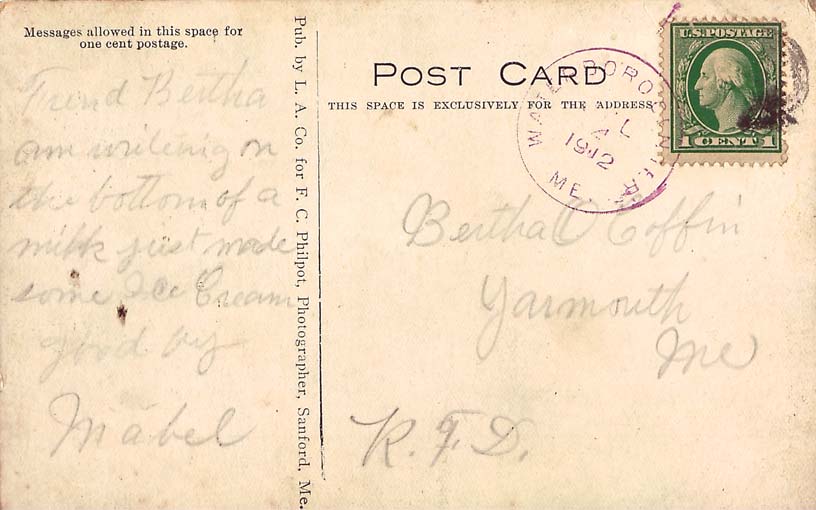 Messages allowed in this space for
one cent postage.
Friend Bertha
am writeing on
the bottom of a
milk just made
some Ice Cream
good by
Mabel
Pub. by L. A. Co. for F. C. Philpot, Photographer, Sanford, Me.
POST CARD
THIS SPACE IS EXCLUSIVELY FOR THE ADDRESS
WATERBORO CENTER
1912
ME.
U.S. POSTAGE
1 CENT 1
Bertha O Coffin
Yarmouth
Me
R.F.D.